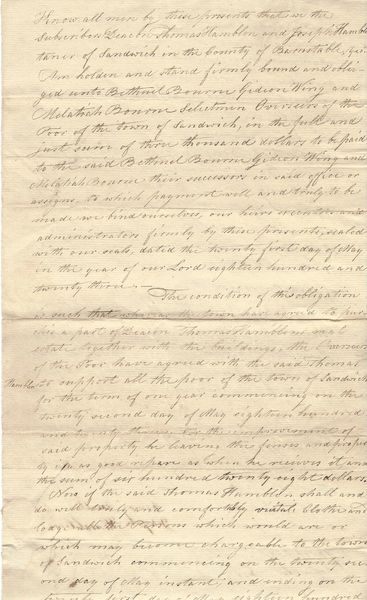 Know all men by these presents that we the
Subscribers Deacon Thomas Hamblen and Joseph Hamblen
taner of Sandwich in the County of Barnstable, &c.
Am holden and stand firmly bound and obli-
ged unto Bethuel Bourne Gideon Wing and
Melatiah Bourne Selectmen Overseers of the
Poor of the town of Sandwich, in the full and
just sum of three thousand dollars to be paid
to the said Bethuel Bourne Gideon Wing and
Melatiah Bourne their successors in said office or
assigns, to which payment well and truly to be
made we bind ourselves, our heirs executors and
administrators firmly by these presents, sealed
with our seals, dated the twenty first day of May
in the year of our Lord eighteen hundred and
twenty three.—
The condition of this obligation
is such that whereas the town have agreed to pur-
a part of Deacon Thomas Hamblens real
estate together with the buildings, the Overseers
of the Poor have agreed with the said Thomas
Hamblen to support all the poor of the town of Sandwich
for the term of one year commencing on the
twenty second day of May eighteen hundred
and twenty three, for the improvement of
said property, he leaving the fences and proper
ty in as good repare as when he recieves it and
the sum of six hundred twenty eight dollars.
Now if the said Thomas Hamblen shall and
do well truly and comfortably victual Clothe and
lodge all the Persons which would are or
which may become chargeable to the town
of Sandwich commencing on the twenty sec
ond day of May instant, and ending on the
twenty first day of May eighteen hundred